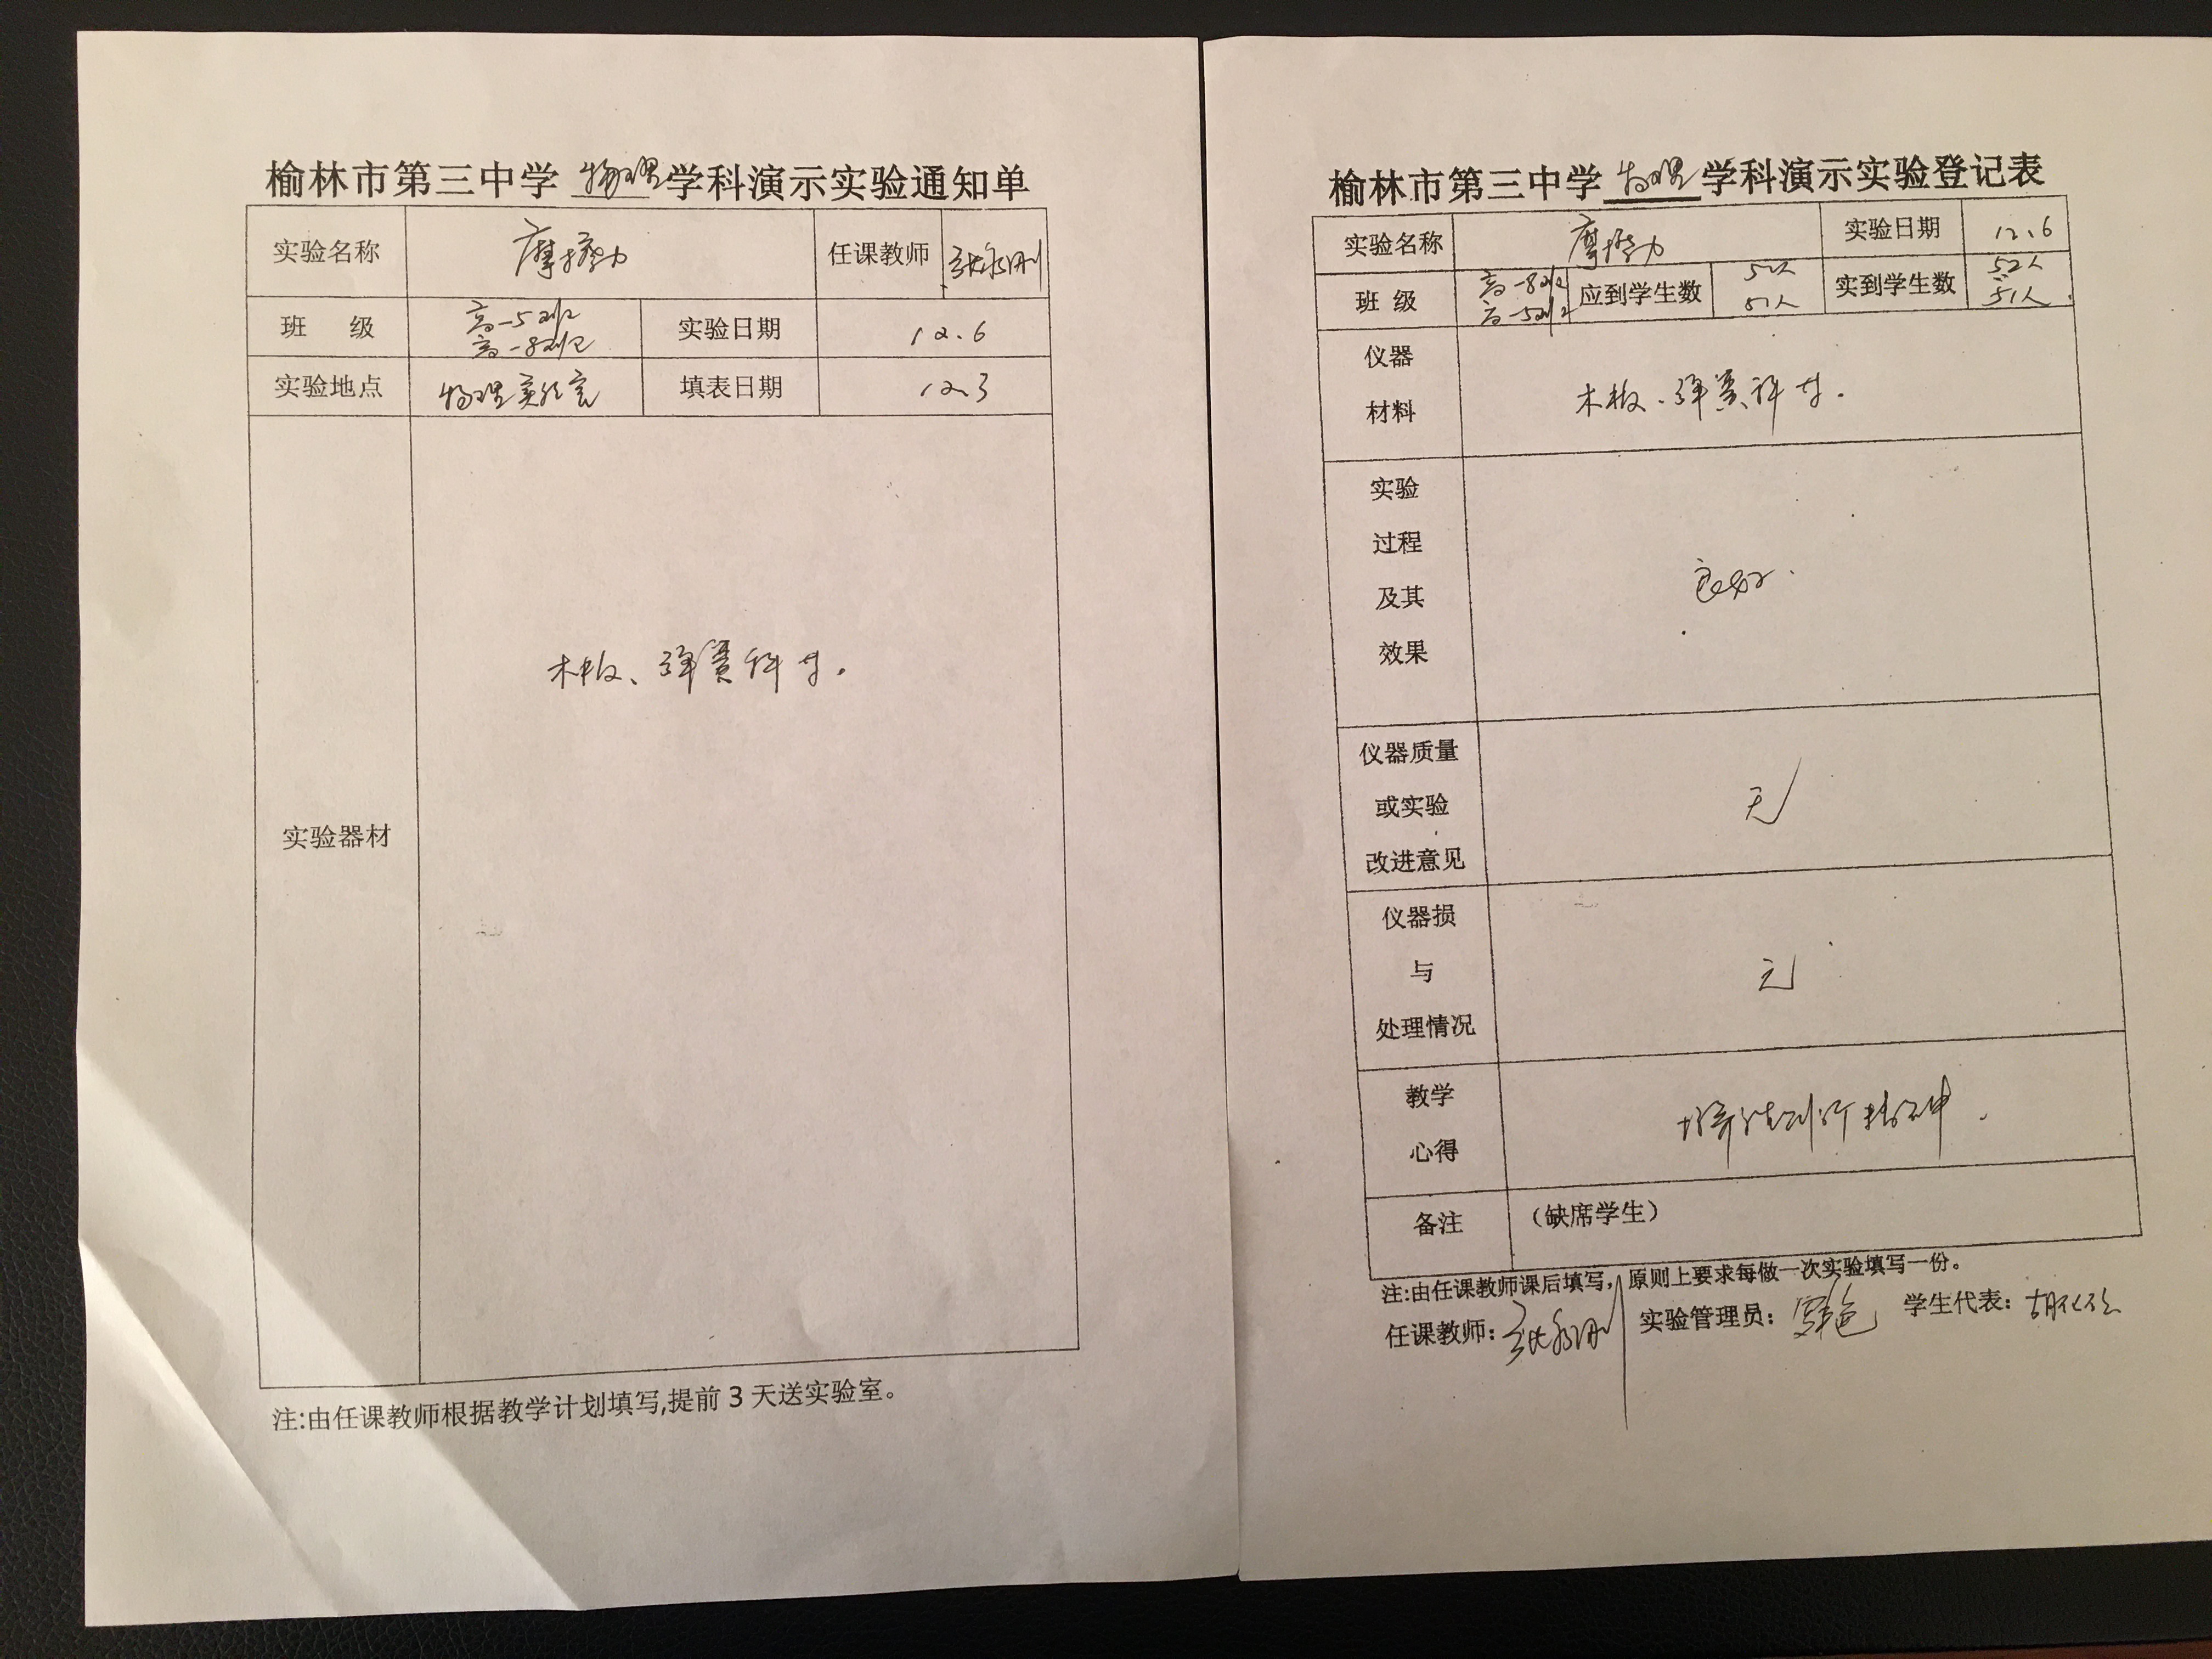 榆林市第三中学 物理 学科演示实验通知单
实验名称 摩擦力 任课教师 张永刚
班 级 高一5班 高一8班 实验日期 12.6
实验地点 物理实验室 填表日期 12.3
实验器材 木板、弹簧秤等.
注:由任课教师根据教学计划填写,提前3天送实验室。
榆林市第三中学 物理 学科演示实验登记表
实验名称 摩擦力 实验日期 12.6
班 级 高一8班 应到学生数 52人 实到学生数 52人
高一5班 51人 51人.
仪器
材料
木板、弹簧秤等.
实验
过程
及其
效果
良好.
仪器质量
或实验
改进意见
无
仪器损
与
处理情况
无
教学
心得
精神.
备注 (缺席学生)
注:由任课教师课后填写,原则上要求每做一次实验填写一份。
任课教师: 张永刚 实验管理员: 学生代表: 胡